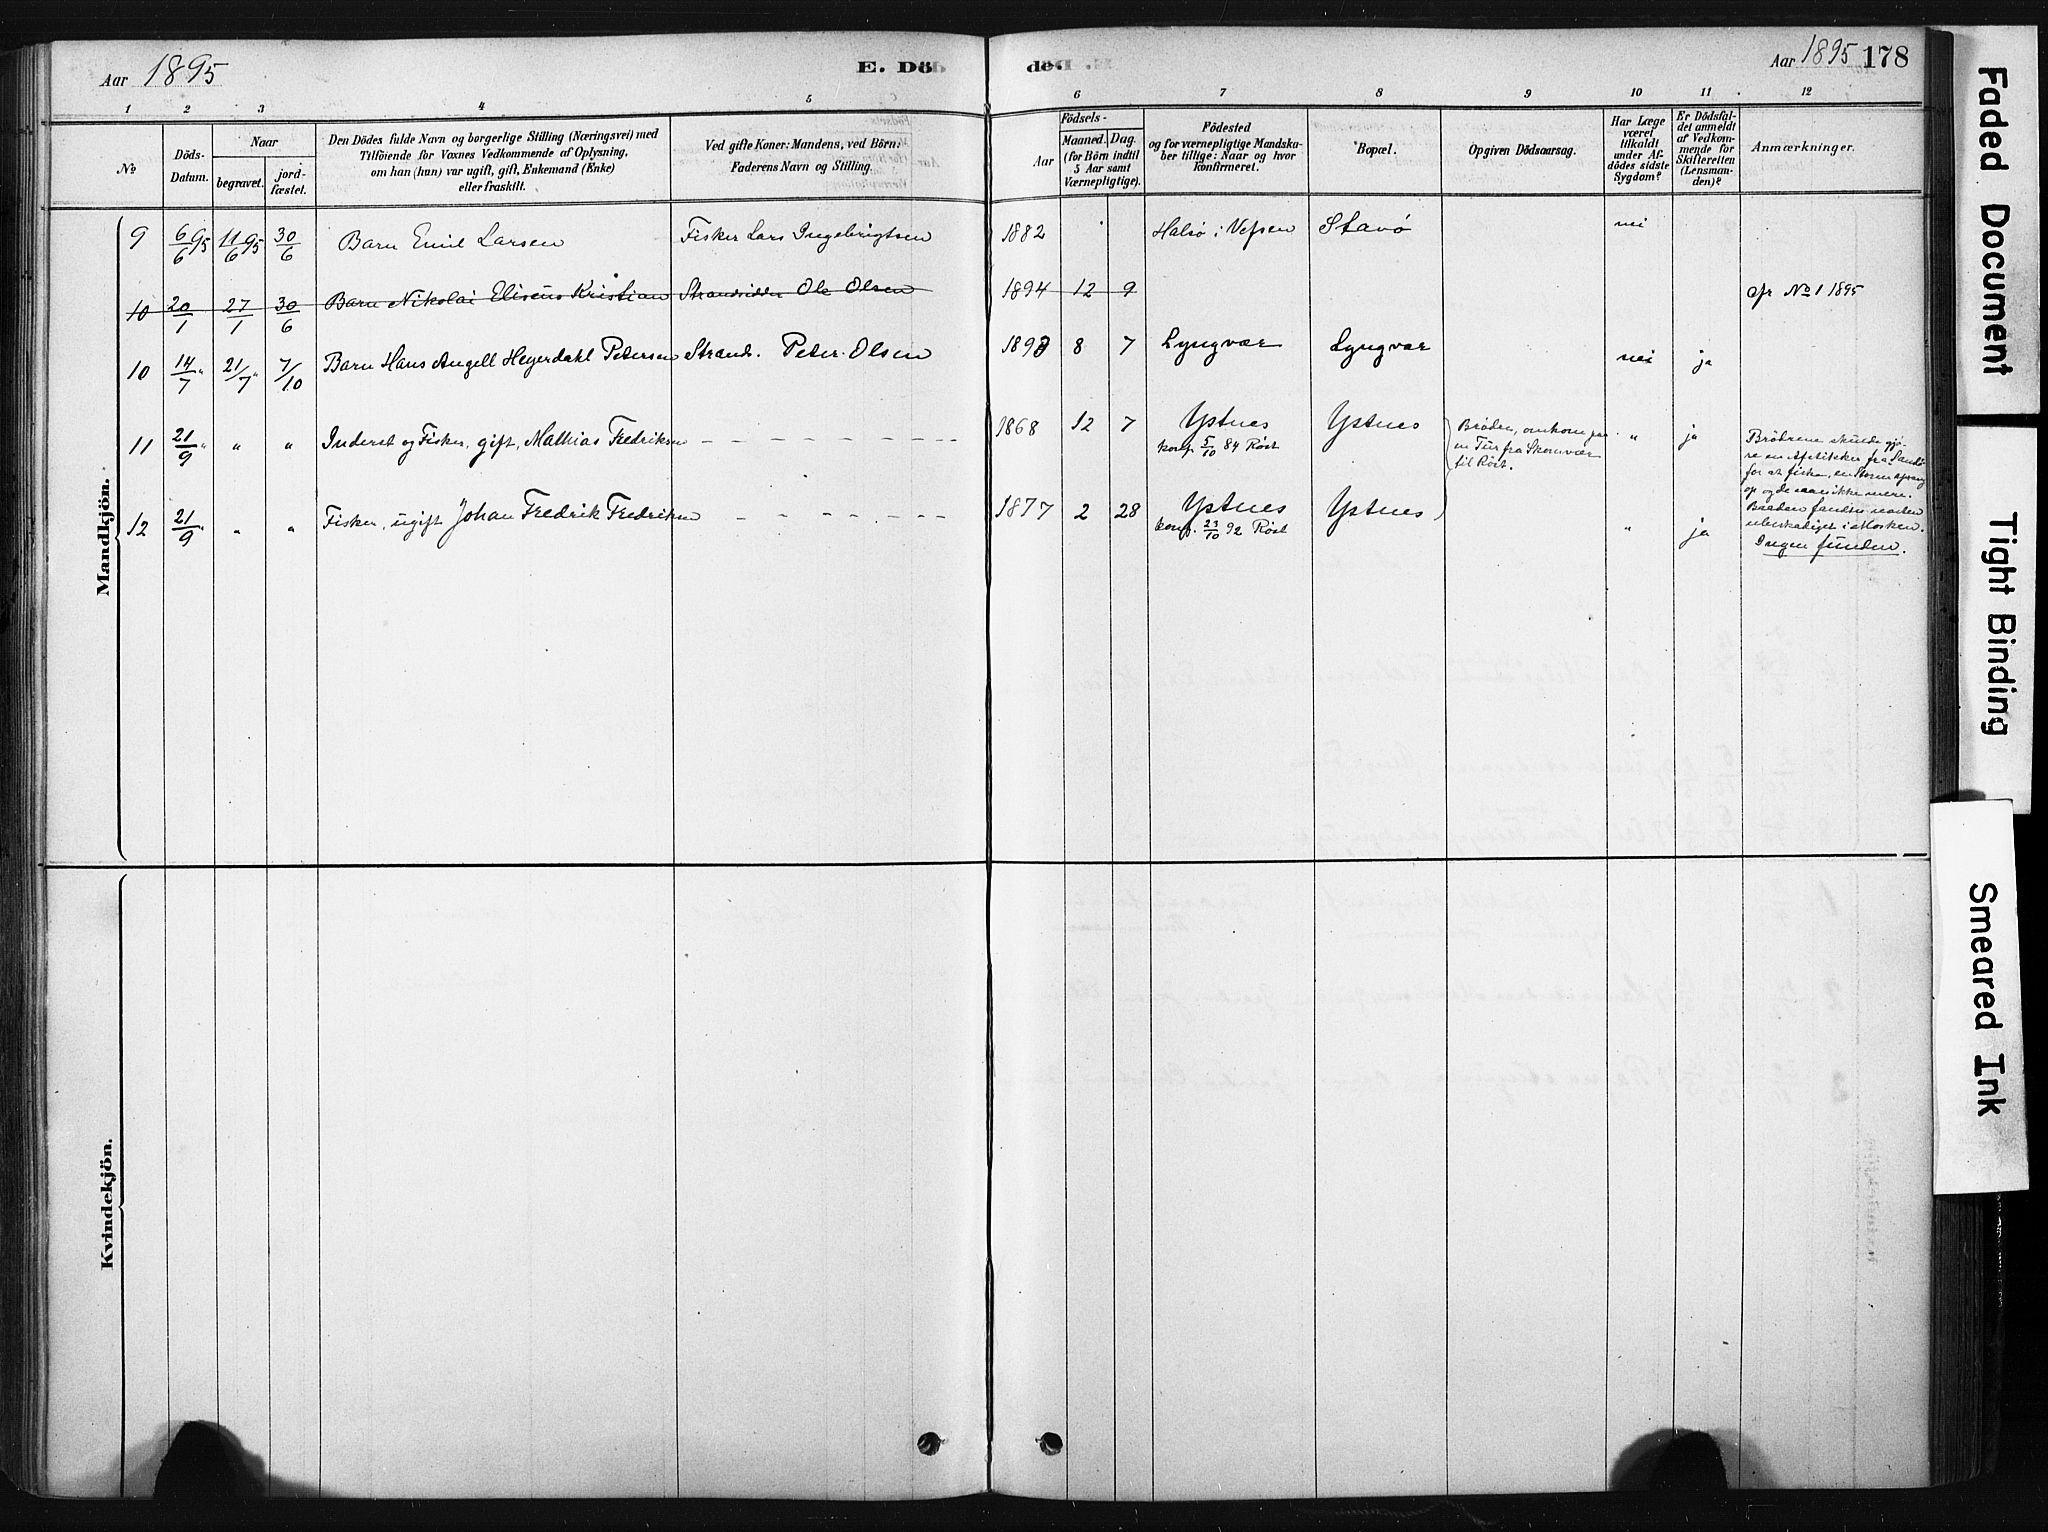 Aar 1895
E. Dö
ded
Aar 1895 178
1 2 3 4 5 6 7 8 9 10 11 12
№
Döds-
Datum.
Naar
begravet.
jord-
fæstet.
Den Dödes fulde Navn og borgerlige Stilling (Næringsvei) med
Tilföiende for Voxnes Vedkommende af Oplysning,
om han (hun) var ugift, gift, Enkemand (Enke)
eller fraskilt.
Ved gifte Koner: Mandens, ved Börn:
Faderens Navn og Stilling.
Födsels-
Aar
Maaned. Dag.
(for Börn indtil
5 Aar samt
Værnepligtige).
Födested
og for værnepligtige Mandska-
ber tillige: Naar og hvor
konfirmeret.
Bopæl.
Opgiven Dödsaarsag.
Har Læge
været
tilkaldt
under Af-
dödes sidste
Sygdom?
Er Dödsfal-
det anmeldt
af Vedkom-
mende for
Skifteretten
(Lensman-
den)?
Anmærkninger.
Mandkjön.
9 6/6 95 11/6 95 30/6 Barn Emil Larsen Fisker Lars Ingebrigtsen 1882 Halsø i Vefsen Stavø nei
10 20/1 27/1 30/6 Barn Nikolai Eliseus Kristian Strandsidder Ole Olsen 1894 12 9 cfr No 1 1895
10 14/7 " 21/7 " 7/10 Barn Hans Angell Heyerdahl Petersen Strands. Peter Olsen 1893 8 7 Lyngvær Lyngvær nei ja
11 21/9 " " " Inderst og Fisker, gift, Mathias Fredriksen 1868 12 7 Ystnes Ystnes " ja
konf. 5/10 84 Röst
Brödre, omkom paa
en Tur fra Skomvær
til Röst.
12 21/9 " " " Fisker, ugift Johan Fredrik Fredriksen 1877 2 28 Ystnes Ystnes " ja
konf. 23/10 92 Röst
Brödrene skulde gjö-
re en Afstikker fra
for at fiske, en Storm sprang
op og de saaes ikke mere.
Baaden fandtes næsten
ubeskadiget i Mosken.
Ingen funden.
Kvindekjön.
Faded Document
Tight Binding
Smeared Ink